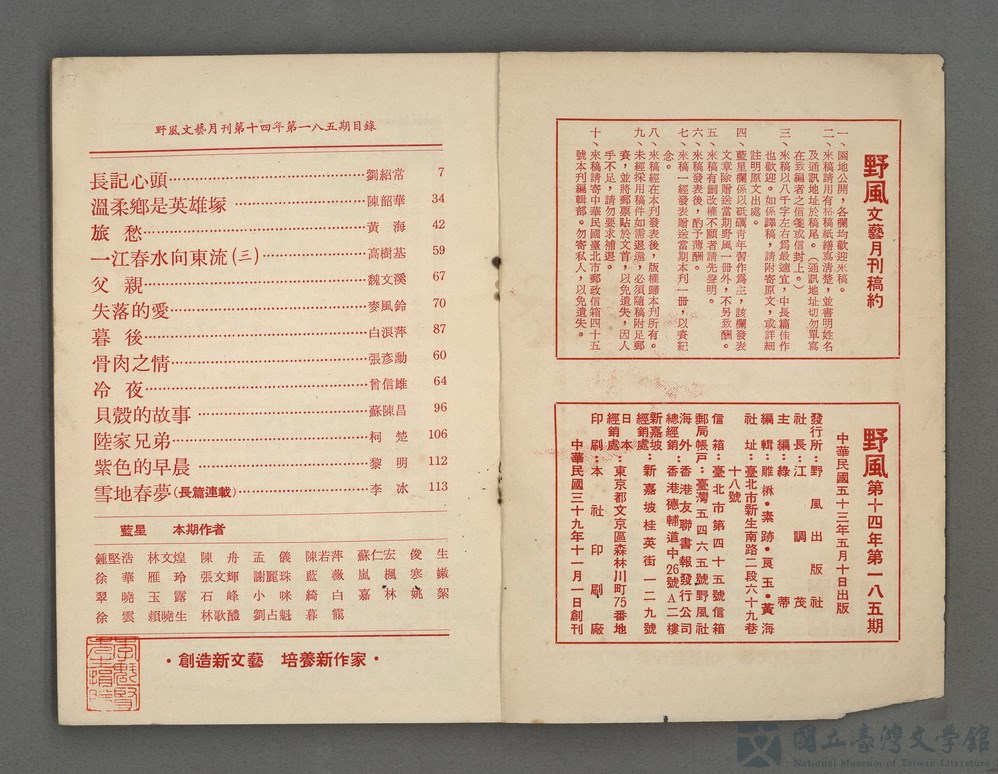 野風文藝月刊第十四年第一八五期目錄
長記心頭 劉紹常 7
溫柔鄉是英雄塚 陳韶華 34
旅愁 黃海 42
一江春水向東流(三) 高樹基 59
父親 魏文溪 67
失落的愛 麥風鈴 70
暮後 白浪萍 87
骨肉之情 張彥勳 60
冷夜 曾信雄 64
貝殼的故事 蘇陳昌 96
陸家兄弟 柯楚 106
紫色的早晨 黎明 112
雪地春夢(長篇連載) 李冰 113
藍星 本期作者
鍾堅浩 林文煌 陳舟 孟儀 陳若萍 蘇仁宏 俊生
徐華 雁玲 張文輝 謝麗珠 藍薇 嵐楓 寒嫩
翠曉 玉露 石峰 小咪 綺白 嘉林 姚絮
徐雲 賴曉生 林歌醴 劉占魁 暮靄
·創造新文藝 培養新作家·
野風文藝月刊稿約
一、園地公開,各欄均歡迎來稿。
二、來稿請用有格稿紙繕寫清楚,並書明姓名
及通訊地址于稿尾。(通訊地址切勿單寫
在致編者之信箋或信封上。)
三、來稿以八千字左右爲最適宜,中長篇佳作
也歡迎。如係譯稿,請附寄原文,或詳細
註明原文出處。
四、藍星欄係以砥礪青年習作爲主,該欄發表
文章除贈送當期野風一冊外,不另致酬。
五、來稿有刪改權不願者請先聲明。
六、來稿發表後,酌予薄酬。
七、來稿一經發表贈送當期本刊一冊,以資紀
念。
八、來稿經在本刊發表後,版權歸本刊所有。
九、未經採用稿件如需退還,必須隨稿附足郵
資,並將郵票貼於文首,以免遺失,因人
手不足,請勿要求補退。
十、來稿請寄中華民國臺北市郵政信箱四十五
號本刊編輯部。勿寄私人,以免遺失。
野風 第十四年第一八五期
中華民國五十三年五月十日出版
發行所:野風出版社
社長:江調茂
主編:綠蒂
編輯:雕㯬·素跡·良玉·黃海
社址:臺北市新生南路二段六十九巷
十八號
信箱:臺北市第四十五號信箱
郵局帳戶:臺灣五四六五號野風社
海外總經銷:香港友聯書報發行公司
香港德輔道中26號A二樓
新嘉坡經銷處:新嘉坡桂英街一二九號
日本經銷處:東京都文京區森林川町75番地
印刷:本社印刷廠
中華民國三十九年十一月一日創刊
國立臺灣文學館
National Museum of Taiwan Literature